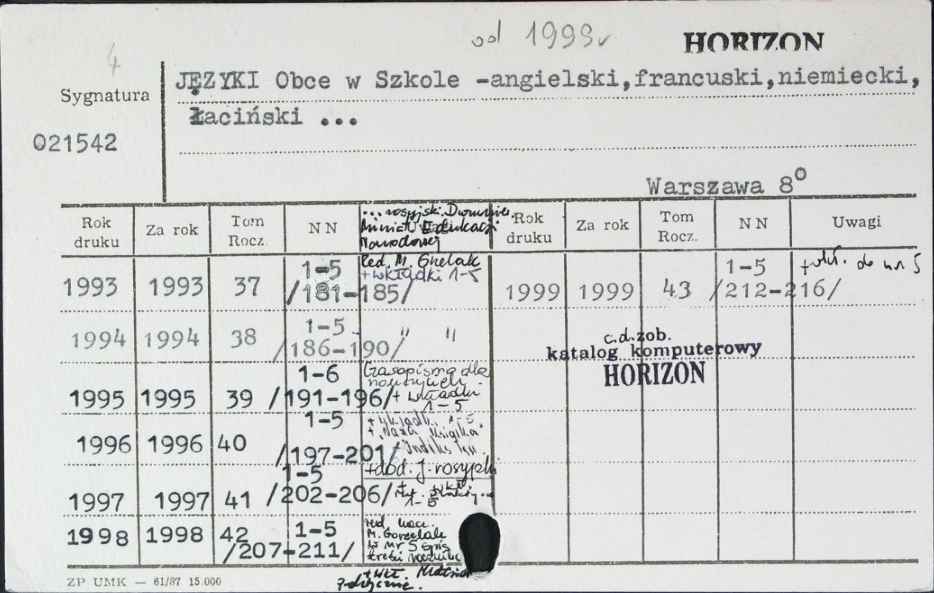 4
od 1993r
HORIZON
Sygnatura
021542
JĘZYKI Obce w Szkole -angielski,francuski,niemiecki,
łaciński ...
Warszawa 8°
Rok druku Za rok Tom Rocz. NN ...rosyjski. Narodowej Rok druku Za rok Tom Rocz. NN Uwagi
1993 1993 37 1-5 /181-185/ Red. M. + wkładki 1-5 1999 1999 43 1-5 /212-216/ do nr 5
1994 1994 38 1-5 /186-190/ " "
c.d.zob.
katalog komputerowy
HORIZON
1995 1995 39 1-6 /191-196/ Czasopismo dla + wkładki 1-5
1996 1996 40 1-5 /197-201/ 1-5
+dod. j. rosyjski
1997 1997 41 1-5 /202-206/ 1-5
1998 1998 42 1-5 /207-211/ red. nacz. M. Gorzelak
ZP UMK — 61/87 15.000